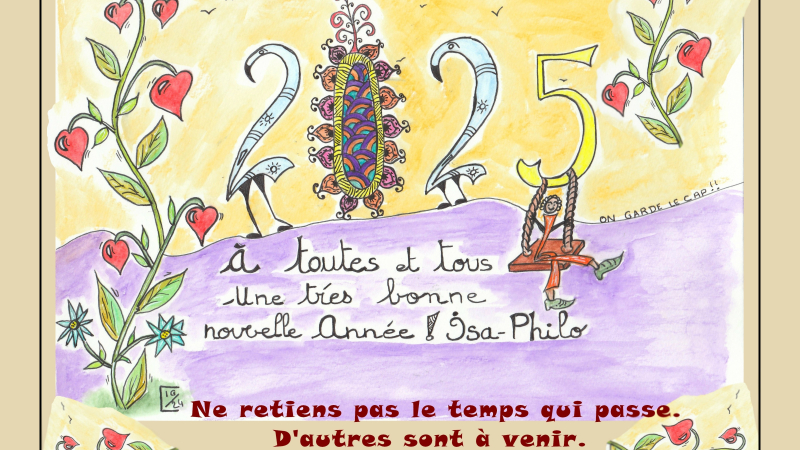 2025
ON GARDE LE CAP!!
À toutes et tous
Une très bonne
nouvelle Année ! Isa-Philo
Ne retiens pas le temps qui passe.
D'autres sont à venir.